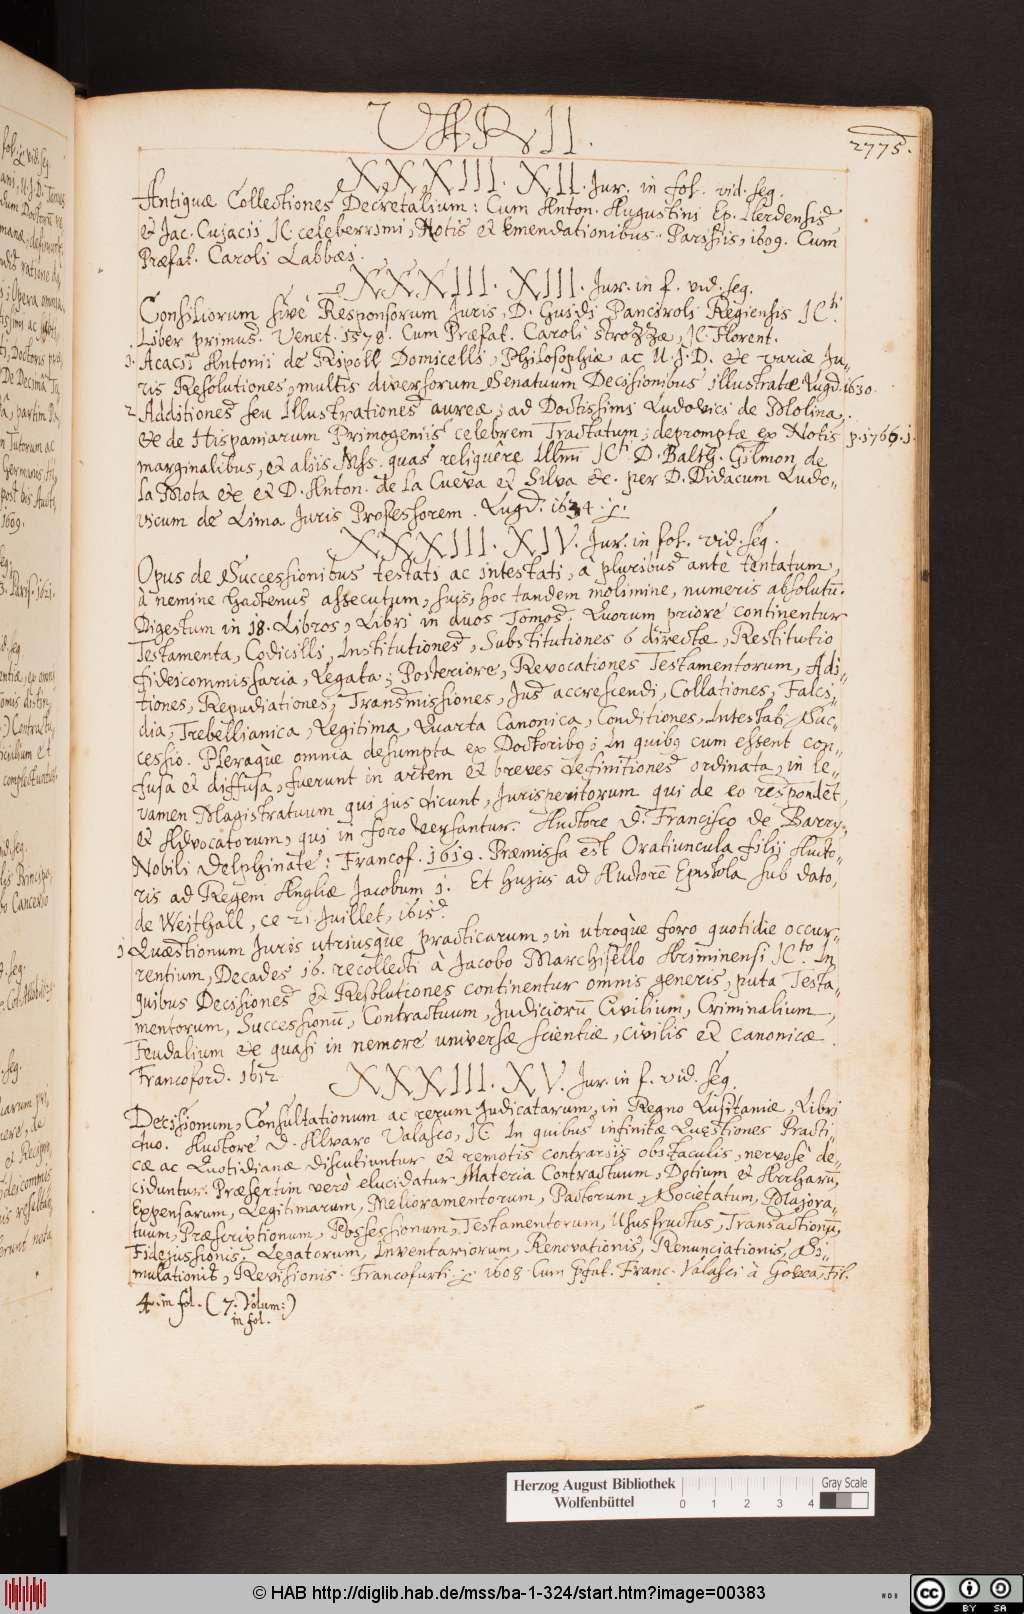 VARII.
2775.
XXXIII. XII. Jur. in fol. vid. seg.
Antiquæ Collectiones Decretalium: Cum Anton. Augustini Ep. Ilerdensis
et Jac. Cujacii JC celeberrimi, Notis et Emendationibus. Parisiis, 1609. Cum
Præfat. Caroli Labbæi.
XXXIII. XIII. Jur. in f. vid. seg.
Consiliorum sive Responsorum Juris, D. Guidi Panciroli Regiensis JCti.
Liber primus. Venet. 1578. Cum Præfat. Caroli Strozzæ, JC Florent.
3. Acacii Antonii de Ripoll Domicelli, Philosophiæ ac U.J.D. et variæ Ju-
ris Resolutiones, multis diversorum Senatuum Decisionibus illustratæ Lugd. 1630.
2. Additiones seu Illustrationes aureæ; ad Doctissimi Ludovici de Molina,
&c de Hispaniarum Primogeniis celebrem Tractatum; depromptæ ex Notis p. 1766. 1.
marginalibus, et aliis Mss. quas reliquêre Illmi JCti D. Balth. Gilmon de
la Mota &c et D. Anton. de la Cueva et Silva &c. per D. Didacum Ludo-
vicum de Lima Juris Professorem. Lugd. 1634.
XXXIII. XIV. Jur. in fol. vid. seg.
Opus de Successionibus testati ac intestati, à pluribus antè tentatum,
à nemine hactenus assecutum, suis, hoc tandem molimine, numeris absolutū.
Digestum in 18. Libros, Libri in duos Tomos. Quorum priore continentur
Testamenta, Codicilli, Institutiones, Substitutiones 6 directæ, Restitutio
fideicommissaria, Legata; Posteriore, Revocationes Testamentorum, Adi-
tiones, Repudiationes, Transmissiones, Jus accrescendi, Collationes, Falci-
dia, Trebellianica, Legitima, Quarta Canonica, Conditiones, Intestati Suc-
cessio. Pleraque omnia desumpta ex Doctoribq; In quibq cum essent con-
fusa et diffusa, fuerunt in artem et breves definitiones ordinata, in le-
vamen Magistratuum qui jus dicunt, Jurisperitorum qui de eo respondēt,
et Advocatorum, qui in foro versantur. Auctore D. Francisco de Barry,
Nobili Delphinate: Francof. 1619. Præmissa est Oratiuncula filij Aucto-
ris ad Regem Angliæ Jacobum 1. Et hujus ad Auctorē Epistola sub dato,
de Weithall, ce 21 Juillet, 1615.
1. Quæstionum Juris utriusque practicarum, in utroque foro quotidie occur-
rentium, Decades 16. recollecti à Jacobo Marchisello Ariminensi JCto. In
quibus Decisiones et Resolutiones continentur omnis generis, puta Testa-
mentorum, Successionū, Contractuum, Judiciorū Civilium, Criminalium,
Feudalium &c quasi in nemore universæ scientiæ, civilis et canonicæ.
Francoford. 1612
XXXIII. XV. Jur. in f. vid. seg.
Decisionum, Consultationum ac rerum Judicatarum, in Regno Lusitaniæ, Libri
duo. Auctore D. Alvaro Valasco, JC. In quibus infinitæ Quæstiones Practi-
cæ ac Quotidianæ discutiuntur et remotis contrariis obstaculis, nervosè de-
ciduntur. Præsertim verò elucidatur Materia Contractuum, Dotium et Arrharū,
Expensarum, Legitimarum, Melioramentorum, Pactorum, Societatum, Majora-
tuum, Præscriptionum, Possessionum, Testamentorum, Ususfructus, Transactionū,
Fidejussionis, Legatorum, Inventariorum, Renovationis, Renunciationis, Si-
mulationis, Revisionis. Francofurti 1608. Cum Præfat. Franc. Valasci à Govea, Fil.
4. in fol. (7. Volum:)
in fol.
Herzog August Bibliothek
Wolfenbüttel
0 1 2 3 4
Gray Scale
© HAB http://diglib.hab.de/mss/ba-1-324/start.htm?image=00383
cc BY SA